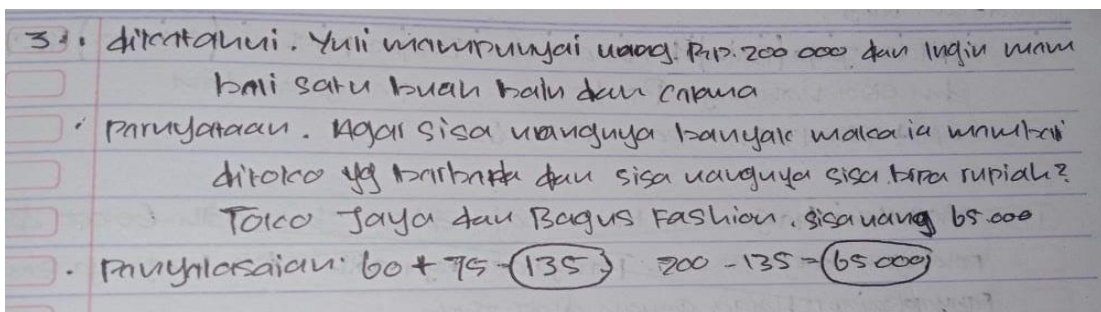 3. diketahui. Yuli mempunyai uang. Rp. 200 000 dan ingin mem
beli satu buah baju dan celana
. Pernyataan. Agar sisa uangnya banyak maka ia membeli
ditoko yg berbeda dan sisa uangnya sisa brpa rupiah?
Toko Jaya dan Bagus Fashion. sisa uang 65.000
. Penyelesaian: 60 + 75 = 135 200 - 135 = 65 000